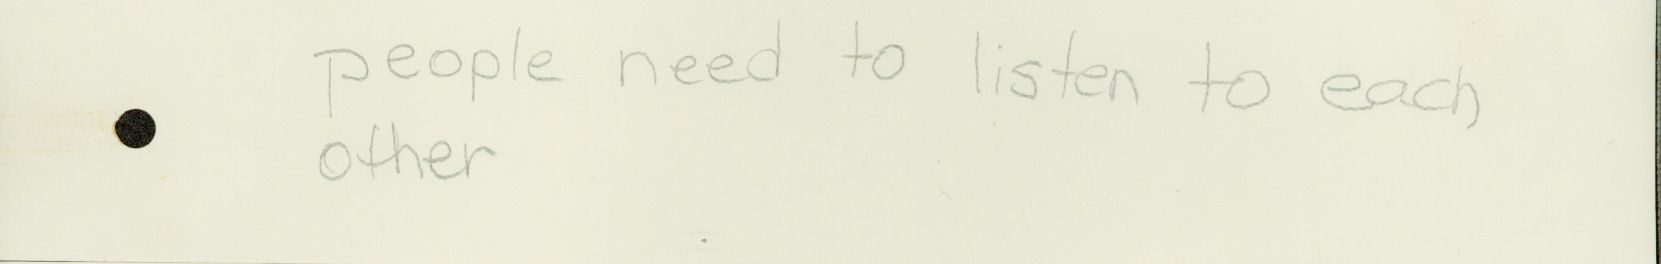 people need to listen to each
other